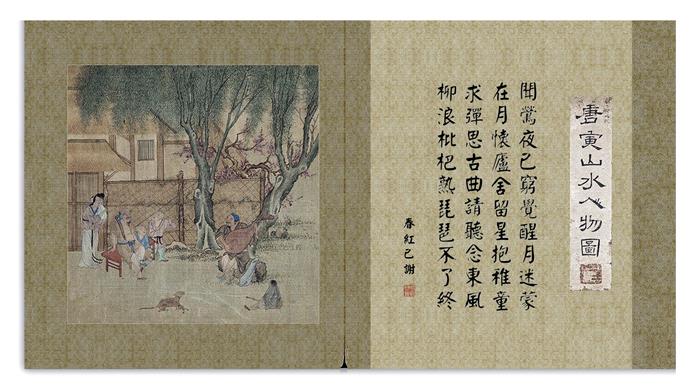 唐寅山水人物圖
聞鶯夜已窮覺醒月迷蒙
在月懷廬舍留星抱稚童
求彈思古曲請聽念東風
柳浪枇杷熟琵琶不了終
春紅已謝